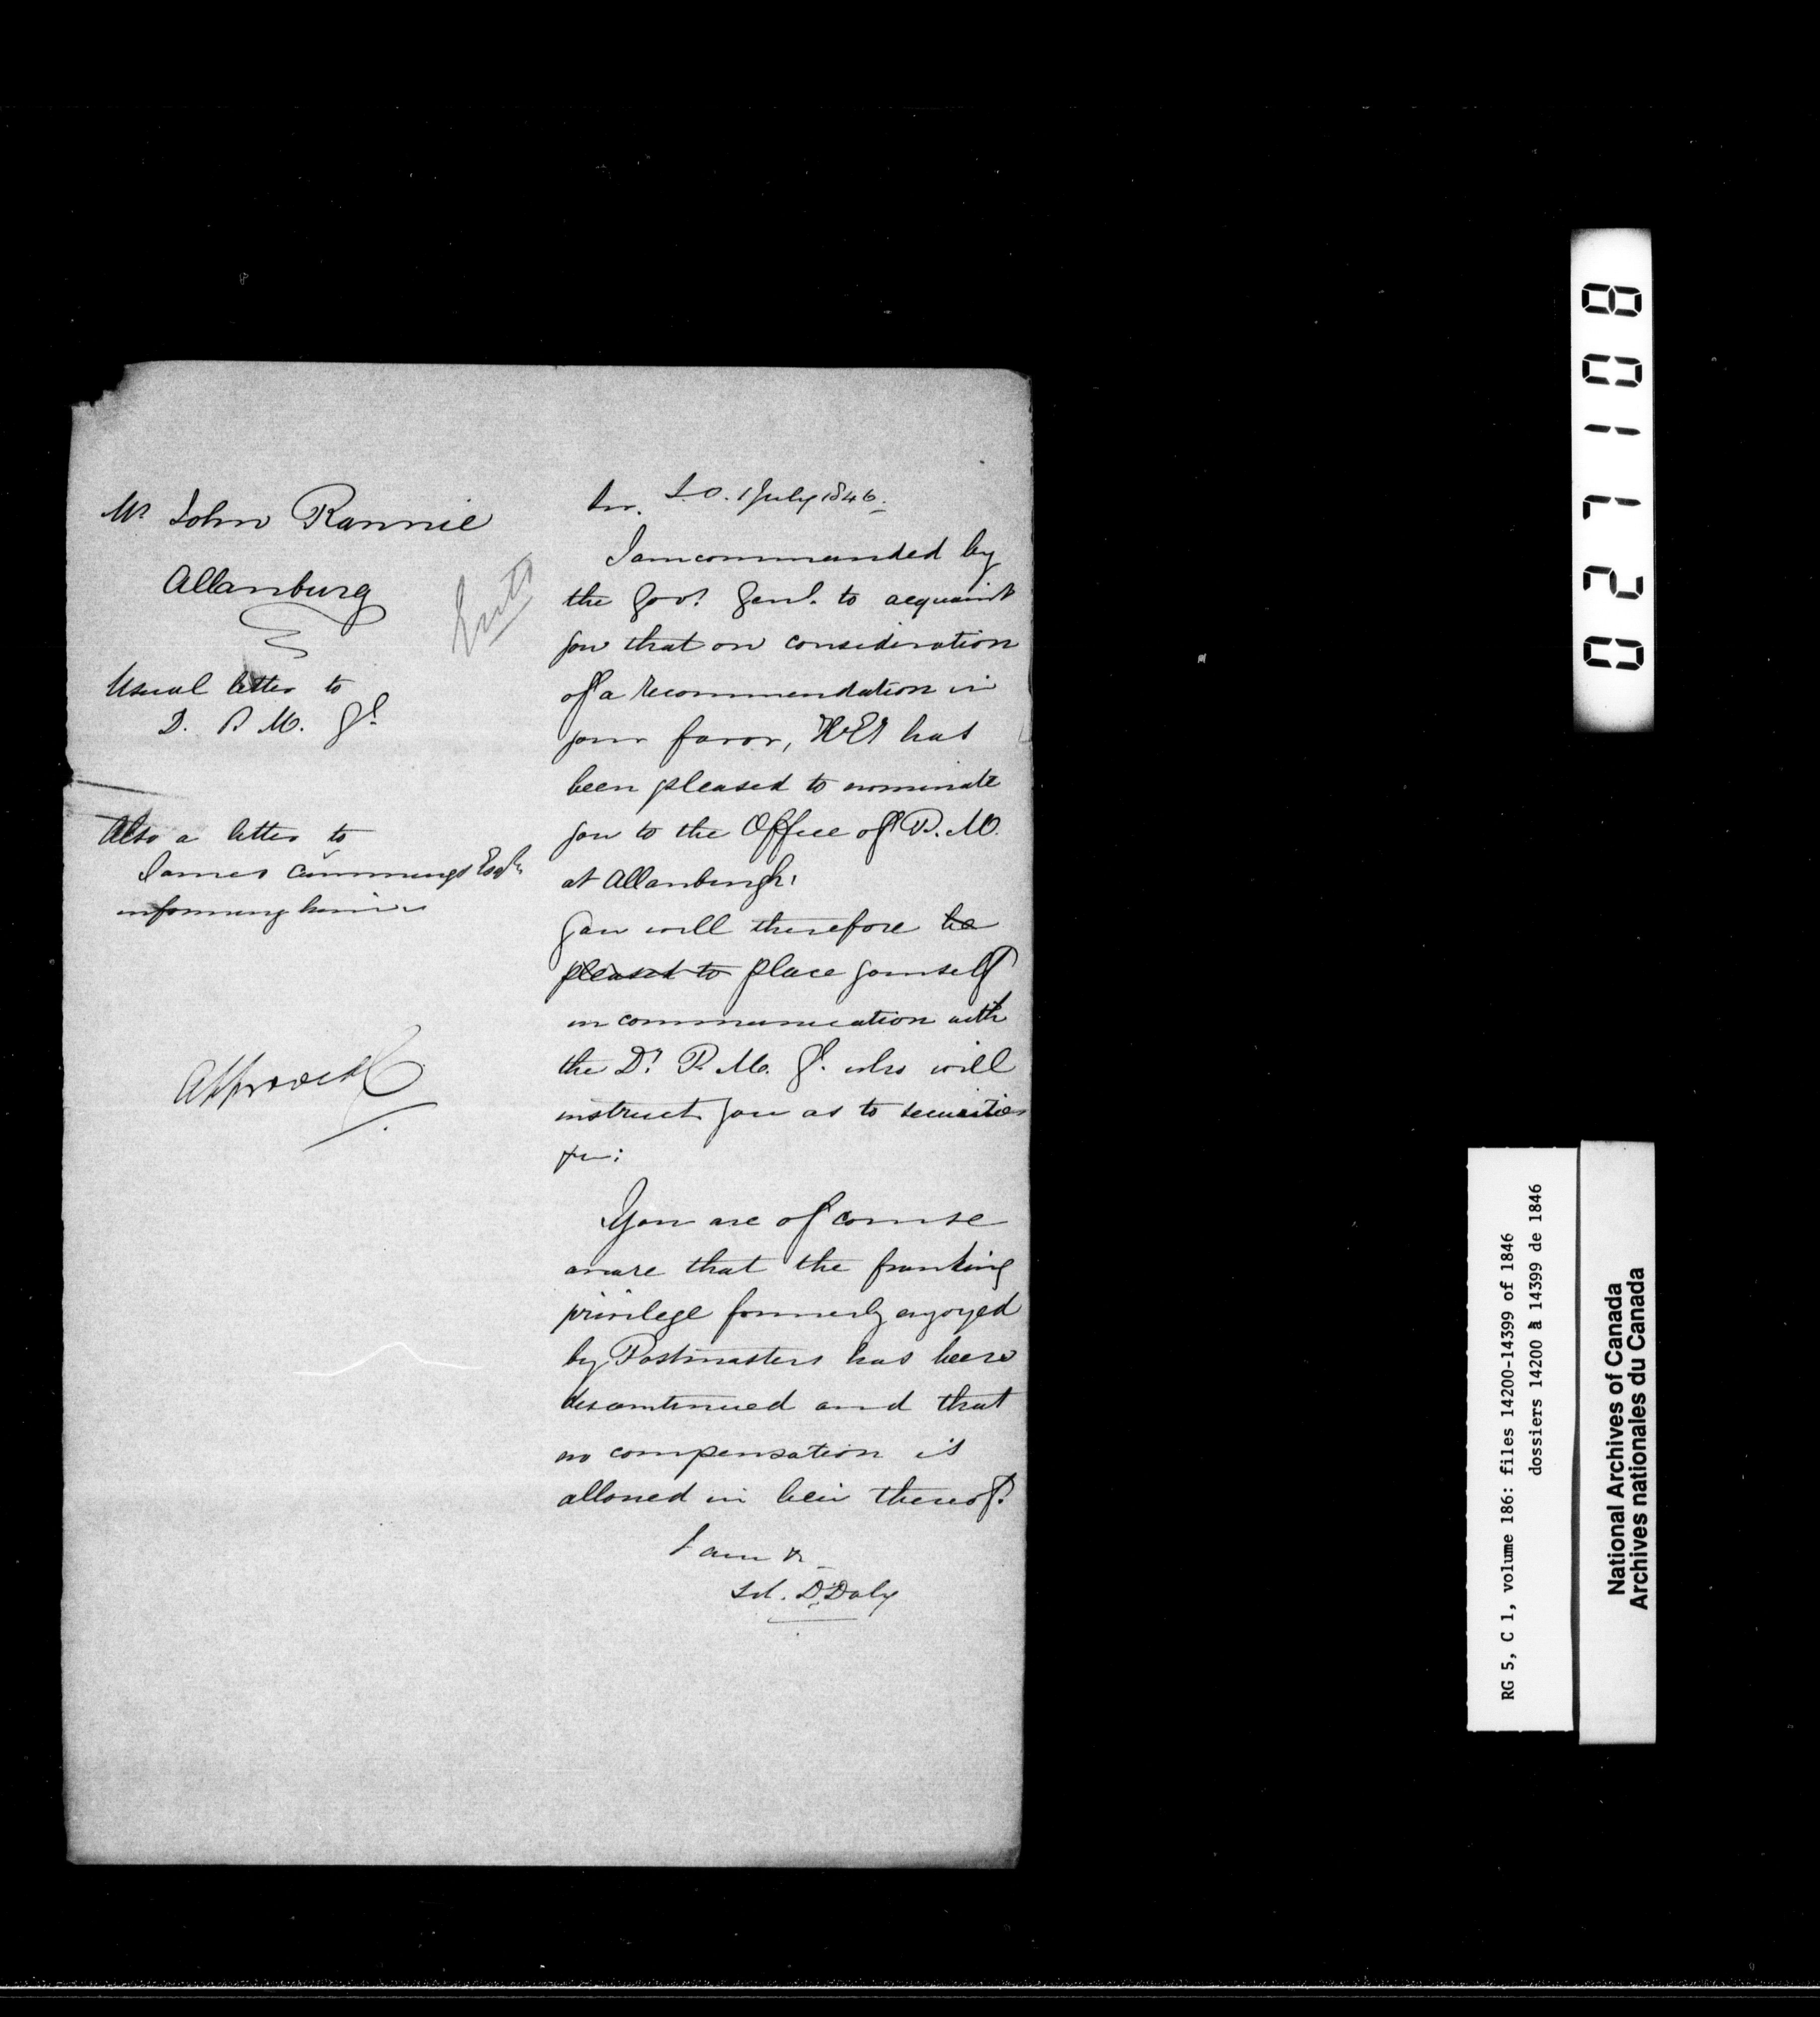 Mr John Rannie
Allanburg
Usual letter to
D. P. M. Gl
Also a letter to
James Cummings Esqr
informing him
Approved
S.O. 1 July 1846.
Sir.
I am commanded by
the Govr Genl. to acquaint
you that on consideration
of a recommendation in
your favor, H Ey has
been pleased to nominate
you to the Office of P. M.
at Allanburgh.
You will therefore be
pleased to place yourself
in communication with
the Dy P. M. Gl. who will
instruct you as to securities
&c:
You are of course
aware that the franking
privilege formerly enjoyed
by Postmasters has been
discontinued and that
no compensation is
allowed in lieu thereof.
I am &c
Sd. D. Daly
0 2 7 1 0 8
RG 5, C 1, volume 186: files 14200-14399 of 1846
dossiers 14200 à 14399 de 1846
National Archives of Canada
Archives nationales du Canada